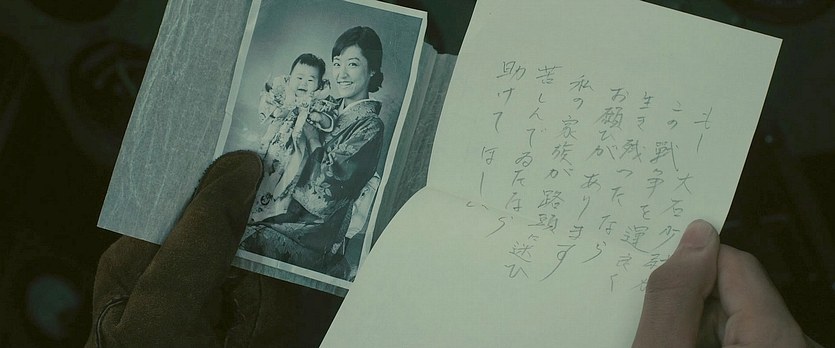 もし 大石少尉が
この戦争を運良く
生き残ったなら
お願ひがあります
私の家族が路頭に迷ひ
苦しんでゐたなら
助けてほしい